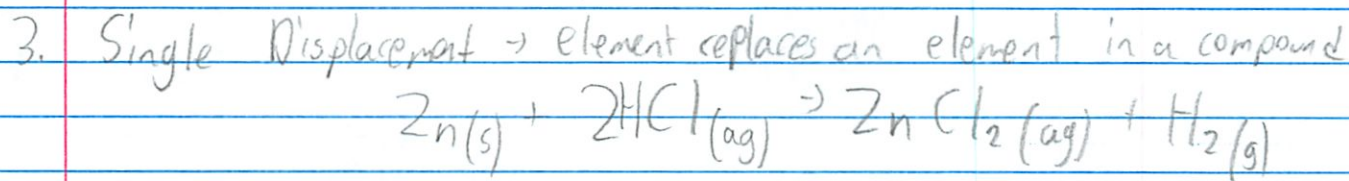 3. Single Displacement → element replaces an element in a compound
Zn(s) + 2HCl(aq) → ZnCl₂(aq) + H₂(g)